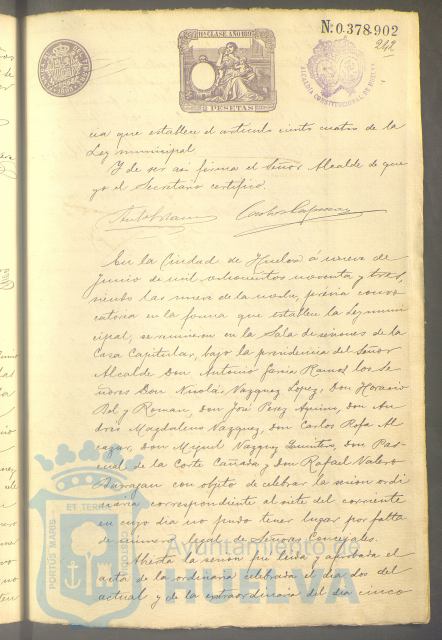 Nº 0.378.902
242
11ª CLASE. AÑO 189
PESETAS
ALCALDIA CONSTITUCIONAL DE HUELVA
cia que establece el artículo ciento cuatro de la
Ley municipal
Y de ser asi firma el Señor Alcalde de que
yo el Secretario certifico.
En la Ciudad de Huelva á nueve de
Junio de mil ochocientos noventa y tres,
siendo las nueve de la noche, prévia convo
catoria en la forma que establece la Ley muni
cipal, se reunieron en la Sala de sesiones de la
Casa Capitular, bajo la presidencia del Señor
Alcalde Don Antonio García Ramos los Se
ñores Don Nicolás Vazquez Lopez, Don Horacio
Bel y Roman, don José Perez, don An
drés Magdaleno Vazquez, don Carlos Rofa Al
cazar, don Miguel Vazquez Quintero, don Pas
cual de la Corte Cañada y Don Rafael Valero
Barragan con objeto de celebrar la sesion ordi
naria correspondiente al siete del corriente
en cuyo dia no pudo tener lugar por falta
de número legal de Señores Concejales.
Abierta la sesion fué leida y aprobada el
acta de la ordinaria celebrada el dia dos del
actual y de la extraordinaria del dia cinco
PORTUS MARIS
ET TERRAE
CUSTODIA
Ayuntamiento de
HUELVA